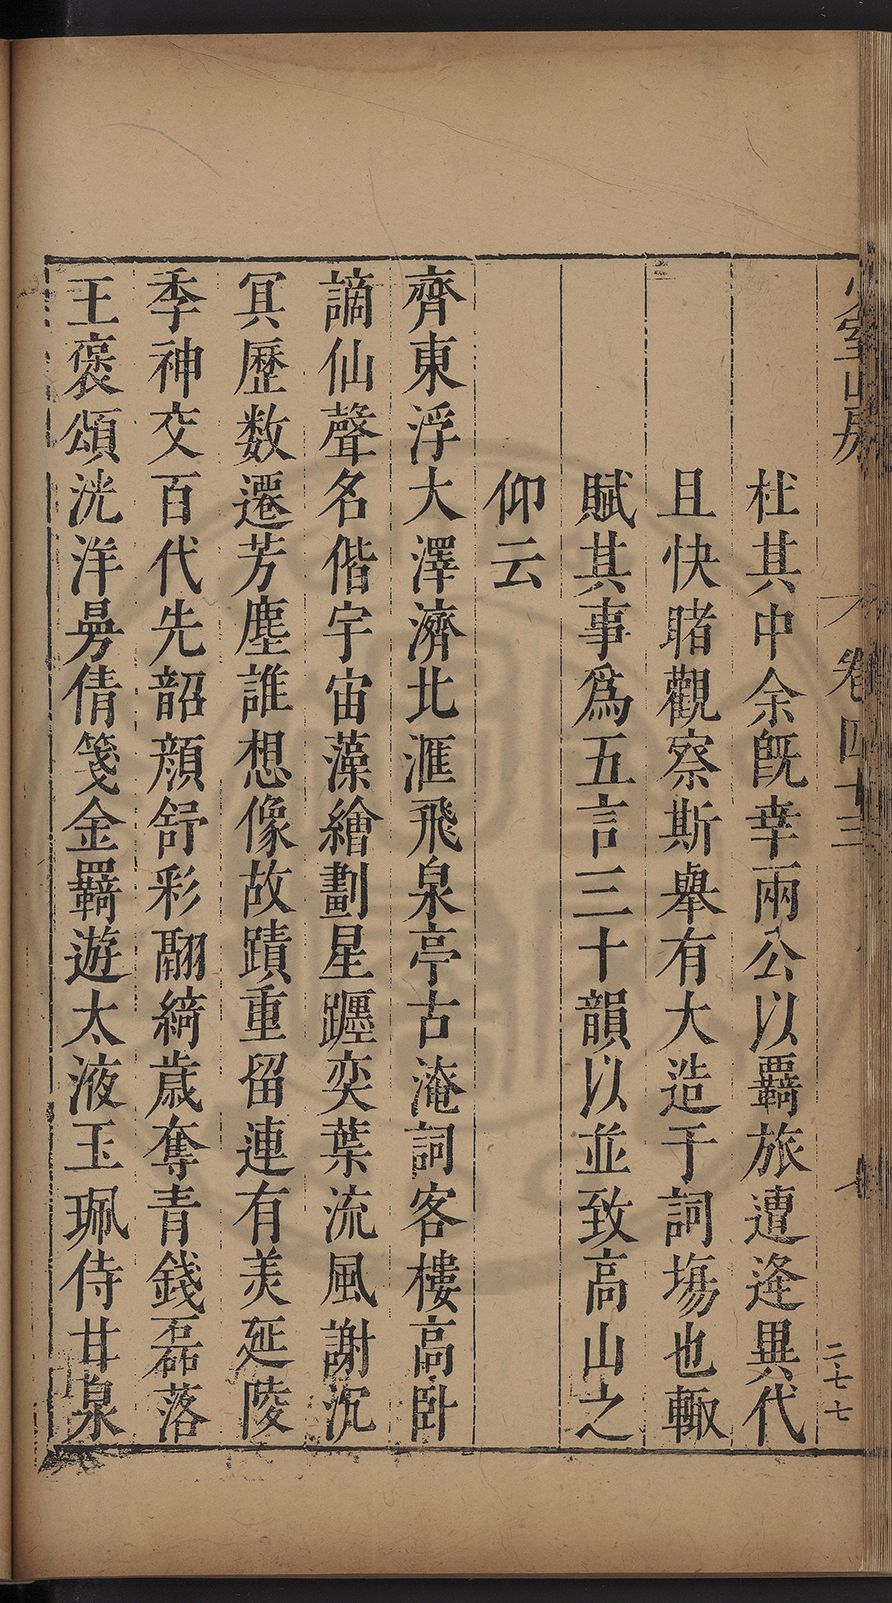 少室山房
卷四十三
二七七
杜其中余旣幸兩公以羇旅遭逄異代
且快睹觀察斯舉有大造于詞塲也輙
賦其事爲五言三十韻以並致高山之
仰云
齊東浮大澤濟北滙飛泉亭古淹詞客樓高卧
謫仙聲名偕宇宙藻繪劃星躔奕葉流風謝沉
冥歷数遷芳塵誰想像故蹟重留連有美延陵
季神交百代先韶顔舒彩翮綺歳奪青錢磊落
王褒頌洸洋曼倩箋金羇遊太液玉珮侍甘泉